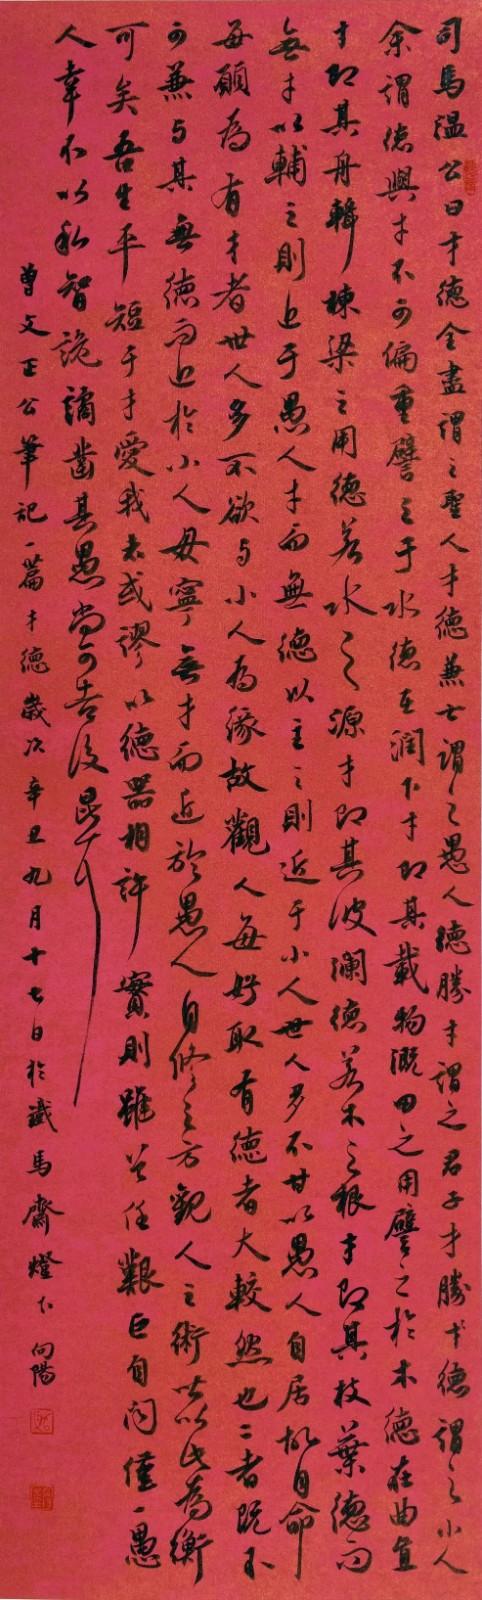 司馬溫公曰才德全盡謂之聖人才德兼亡謂之愚人德勝才謂之君子才勝德謂之小人
余謂德與才不可偏重譬之于水德在潤下才即其載物溉田之用譬之於木德在曲直
才即其舟楫棟梁之用德若水之源才即其波瀾德若木之根才即其枝葉德而
無才以輔之則近于愚人才而無德以主之則近于小人世人多不甘以愚人自居故自命
每願為有才者世人多不欲與小人為緣故觀人每好取有德者大較然也二者既不
可兼與其無德而近於小人毋寧無才而近於愚人自修之方觀人之術皆以此為衡
可矣吾生平短于才愛我者或謬以德器相許實則雖曾任艱巨自問僅一愚
人幸不以私智詭譎鑿其愚尚可告後昆耳
曾文正公筆記一篇才德歲次辛丑九月十七日於鐵馬齋燈下向陽